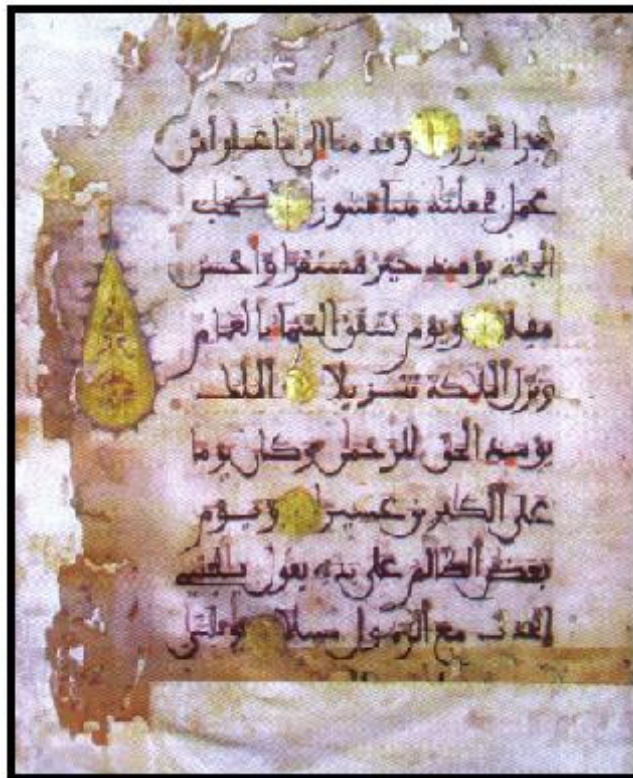 حجرا محجورا وقدمنا إلى ما عملوا من
عمل فجعلنه هباء منثورا أصحب
الجنة يومئذ خير مستقرا وأحسن
مقيلا ويوم تشقق السماء بالغمم
ونزل الملئكة تنزيلا الملك
يومئذ الحق للرحمن وكان يوما
على الكفرين عسيرا ويوم
يعض الظالم على يديه يقول يليتني
اتخذت مع الرسول سبيلا يويلتى